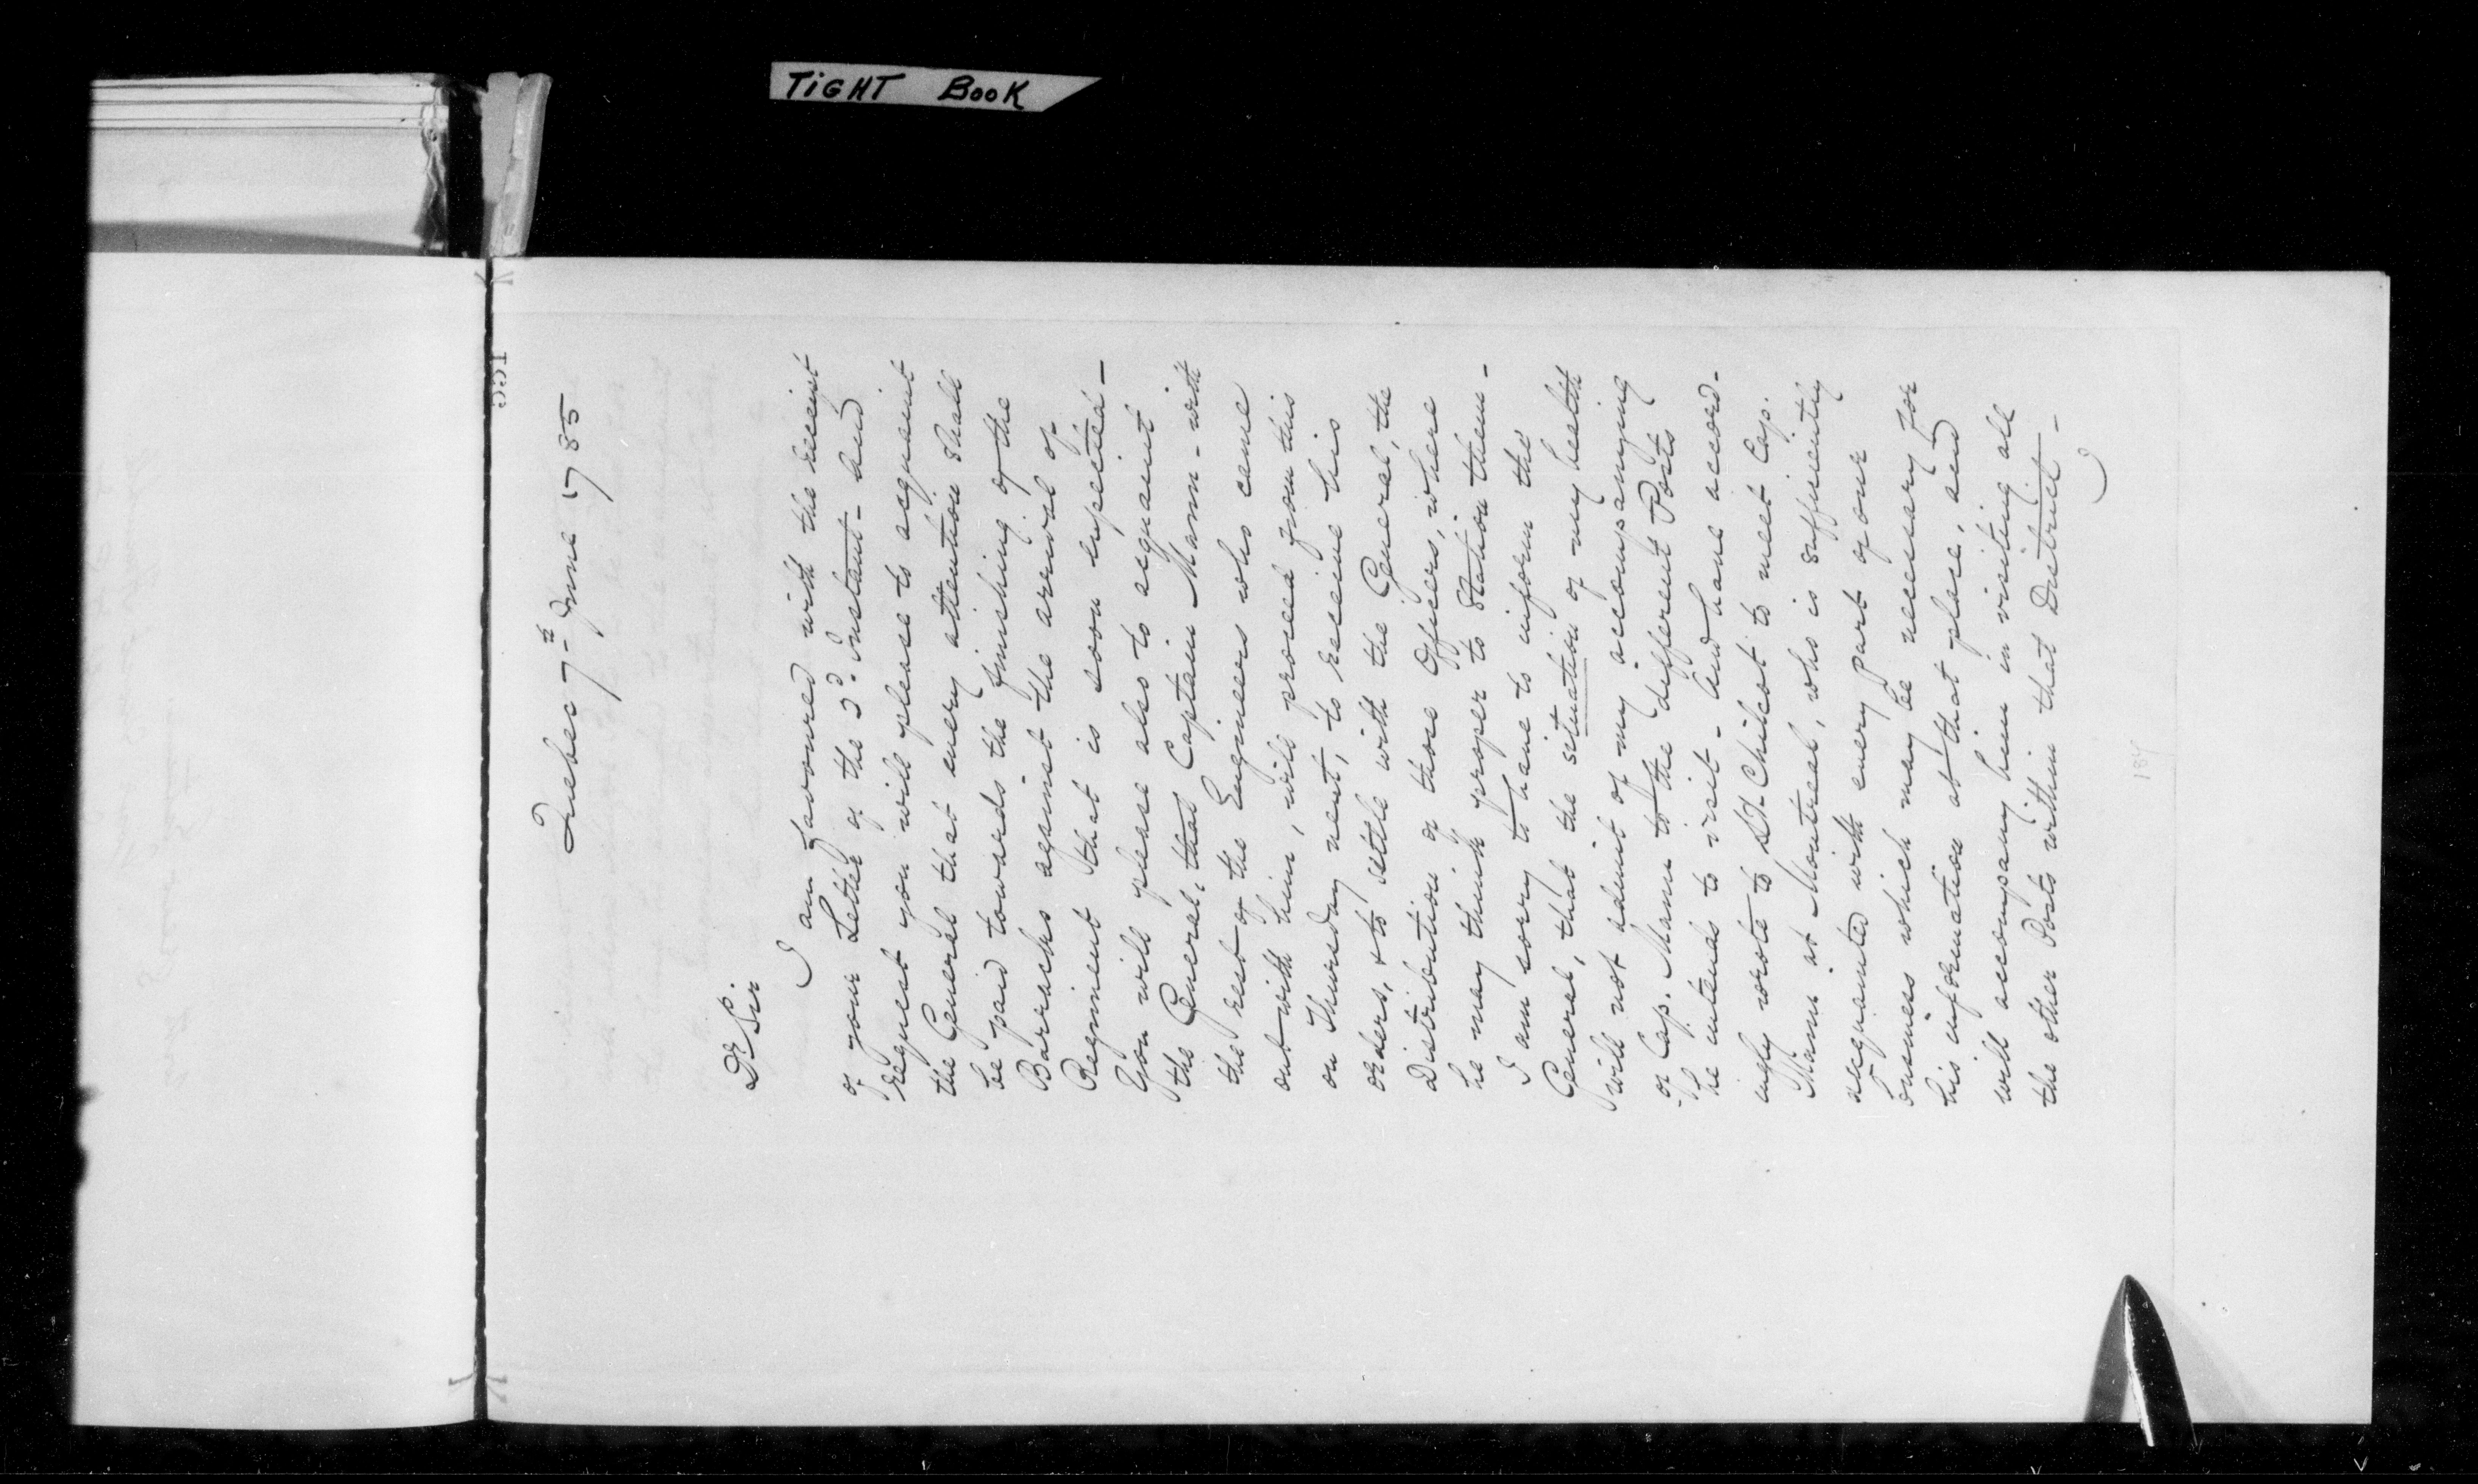 TIGHT BOOK
Quebec 7th June 1785
Dr Sir
I am favoured with the receipt
of your Letter of the 3d. Instant - and
request you will please to acquaint
the General that every attention shall
be paid towards the finishing of the
Barracks against the arrival of
Regiment that is soon expected -
You will please also to acquaint
the General, that Captain Mann - with
the rest of the Engineers who came
out with him, will proceed from this
on Thursday next, to receive his
orders, & to settle with the General, the
Distribution of those Officers, where
he may think proper to Station them -
I am sorry to have to inform the
General, that the situation of my health
will not admit of my accompanying
of Cap. Mann to the different Posts
he intends to visit - And have accord-
ingly wrote to Lt. Chilcot to meet Cap.
Mann at Montreal, who is sufficiently
acquainted with every part of our
business which may be necessary for
his information at that place, and
will accompany him in visiting all
the other Posts within that District -
184